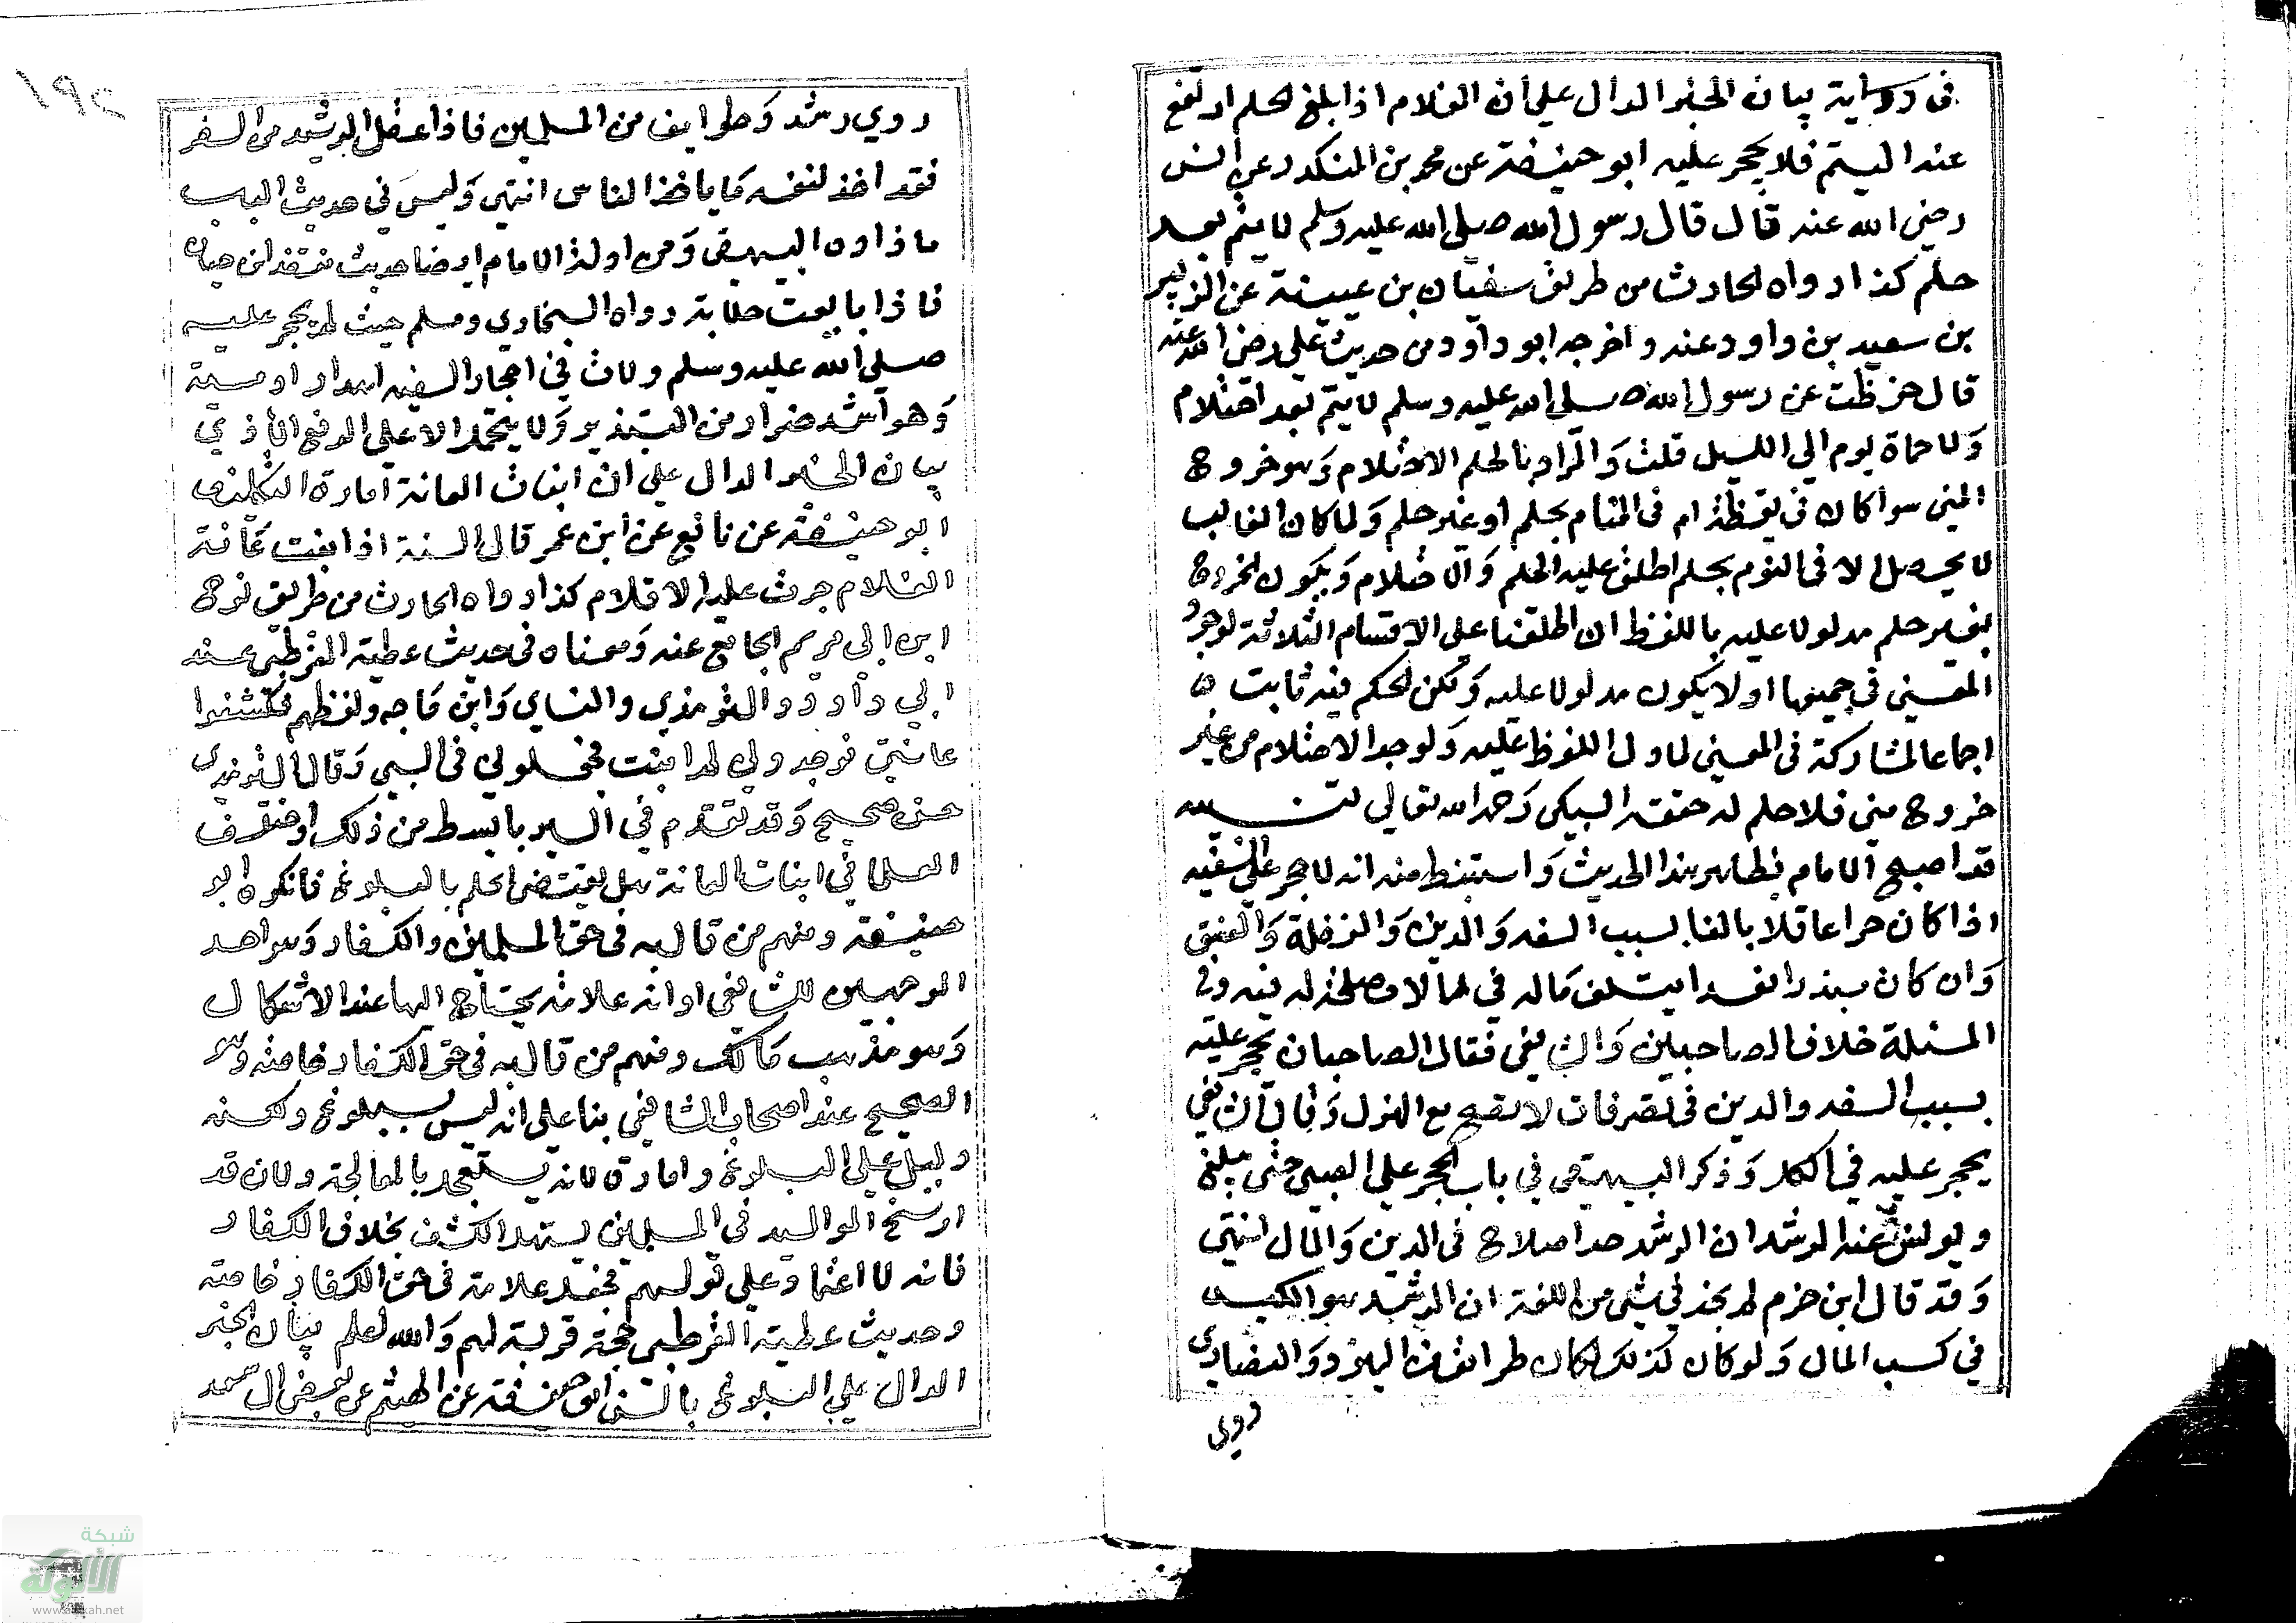 في رواية بيان الخبر الدال على أن الغلام اذا بلغ الحلم ارتفع
عنه اليتم فلا يحجر عليه ابو حنيفة عن محمد بن المنكدر عن انس
رضي الله عنه قال قال رسول الله صلى الله عليه وسلم لا يتم بعد
حلم كذا رواه الحارث من طريق سفيان بن عيينة عن الزبير
بن سعيد بن داود عنه واخرجه ابو داود من حديث علي رضي الله عنه
قال حفظت عن رسول الله صلى الله عليه وسلم لا يتم بعد احتلام
ولا صماة يوم الي الليل قلت والمراد بالحلم الاحتلام وهو خروج
المني سوا كان في يقظة ام في المنام بحلم او غير حلم ولما كان الغالب
لا يحصل الا في النوم بحلم اطلق عليه الحلم والاحتلام ويكون الخروج
بغير حلم مدلولا عليه باللفظ ان اطلقنا على الاقسام الثلاثة لوجود
المعني في جميعها اولا يكون مدلولا عليه ولكن الحكم فيه ثابت
اجماعا لمشاركة في المعني لما دل اللفظ عليه ولو وجد الاحتلام من غير
خروج مني فلا حلم له حققه السبكي رحمه الله تعالي تنبيه
قد احتج الامام بظاهر هذا الحديث واستنبط منه انه لا حجر علي السفيه
اذا كان حرا عاقلا بالغا بسبب السفه والدين والغفلة والفسق
وان كان مبذرا مفسدا يتلف ماله في ما لا مصلحة له فيه وفي
المسئلة خلاف الصاحبين والشافعي فقال الصاحبان يحجر عليه
بسبب السفه والدين في تصرفات لا تصح مع الهزل وقال الشافعي
يحجر عليه في الكل وذكر البيهقي في باب الحجر علي الصبي حتى يبلغ
ويونس منه الرشد ان الرشد هو اصلاح في الدين والمال انتهي
وقد قال ابن حزم لم نجد في شي من اللغة ان الرشد هو الكيس
في كسب المال ولو كان كذلك لكان طوائف من اليهود والنصاري
ذوي
ذوي رشد وطوايف من المسلمين فاذا عقل الرشيد من السفر
فقد اخذ لنفسه كما ياخذ الناس انتهي وليس في حديث الباب
ما زاده البيهقي ومن ادلة الامام ايضا حديث منقذ ابن حبان
فاذا بايعت خلابة رواه البخاري ومسلم حيث لم يحجر عليه
صلي الله عليه وسلم ولان في احجار السفيه اهدار ادميته
وهو اشد ضررا من التبذير ولا يتحمل الاعلي لدفع الاذني
بيان الخبر الدال علي ان انبات العانة امارة التكليف
ابو حنيفة عن نافع عن ابن عمر قال السنة اذا نبتت عانة
الغلام جرت عليه الاقلام كذا رواه الحارث من طريق نوح
ابن ابي مريم الجامع عنه ومعناه في حديث عطية القرظي عند
ابي داود والترمذي والنساي وابن ماجه ولفظهم فكشفوا
عانتي فوجدوني لم انبت فجعلوني في السبي وقال الترمذي
حسن صحيح وقد تقدم في السير بابسط من ذلك واختلاف
العلما في انبات العانة هل يقتضي الحكم بالبلوغ فانكره ابو
حنيفة ومنهم من قال به في حق المسلمين والكفار وهو احد
الوجهين للشافعي او انه علامة يحتاج اليها عند الاشكال
وهو مذهب مالك ومنهم من قال به في حق الكفار خاصة وهو
الصحيح عند اصحاب الشافعي بنا علي انه ليس ببلوغ ولكنه
دليل علي البلوغ وامارة لانه يستعجل بالمعالجة ولان
المواليد في المسلمين يسهل الكشف بخلاف الكفار
فانه لا اعتماد علي قولهم فجعل علامة في حق الكفار خاصة
وحديث عطية القرظي حجة قوية لهم والله اعلم بيان الخبر
الدال علي البلوغ بالسن ابو حنيفة عن الهيثم عن بعض ال سعد
شبكة
الألوكة
www.alukah.net